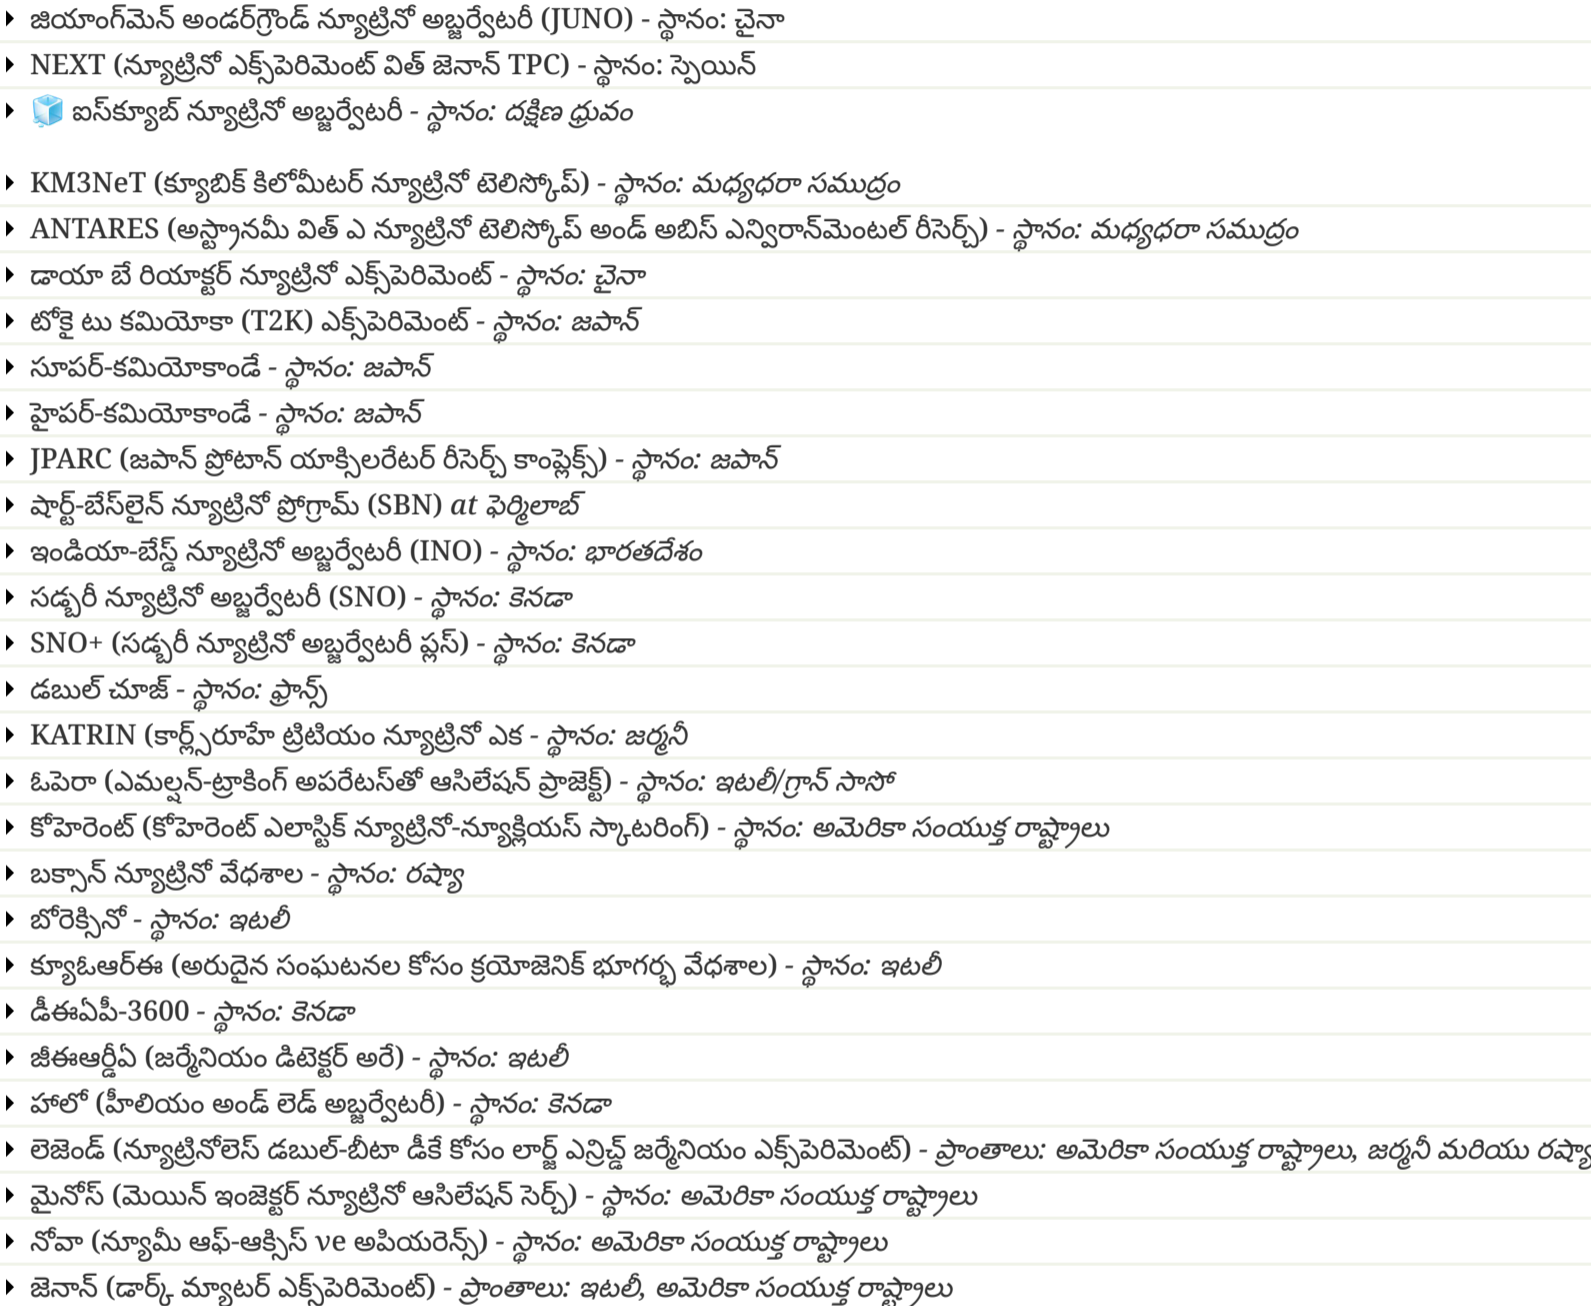 జియాంగ్‌మెన్ అండర్‌గ్రౌండ్ న్యూట్రినో అబ్జర్వేటరీ (JUNO) - స్థానం: చైనా
NEXT (న్యూట్రినో ఎక్స్‌పెరిమెంట్ విత్ జెనాన్ TPC) - స్థానం: స్పెయిన్
ఐస్‌క్యూబ్ న్యూట్రినో అబ్జర్వేటరీ - స్థానం: దక్షిణ ధ్రువం
KM3NeT (క్యూబిక్ కిలోమీటర్ న్యూట్రినో టెలిస్కోప్) - స్థానం: మధ్యధరా సముద్రం
ANTARES (అస్ట్రానమీ విత్ ఎ న్యూట్రినో టెలిస్కోప్ అండ్ అబిస్ ఎన్విరాన్‌మెంటల్ రీసెర్చ్) - స్థానం: మధ్యధరా సముద్రం
డాయా బే రియాక్టర్ న్యూట్రినో ఎక్స్‌పెరిమెంట్ - స్థానం: చైనా
టోకై టు కమియోకా (T2K) ఎక్స్‌పెరిమెంట్ - స్థానం: జపాన్
సూపర్-కమియోకాండే - స్థానం: జపాన్
హైపర్-కమియోకాండే - స్థానం: జపాన్
JPARC (జపాన్ ప్రోటాన్ యాక్సిలరేటర్ రీసెర్చ్ కాంప్లెక్స్) - స్థానం: జపాన్
షార్ట్-బేస్‌లైన్ న్యూట్రినో ప్రోగ్రామ్ (SBN) at ఫెర్మిలాబ్
ఇండియా-బేస్డ్ న్యూట్రినో అబ్జర్వేటరీ (INO) - స్థానం: భారతదేశం
సడ్బరీ న్యూట్రినో అబ్జర్వేటరీ (SNO) - స్థానం: కెనడా
SNO+ (సడ్బరీ న్యూట్రినో అబ్జర్వేటరీ ప్లస్) - స్థానం: కెనడా
డబుల్ చూజ్ - స్థానం: ఫ్రాన్స్
KATRIN (కార్ల్స్‌రూహే ట్రిటియం న్యూట్రినో ఎక - స్థానం: జర్మనీ
ఓపెరా (ఎమల్షన్-ట్రాకింగ్ అపరేటస్‌తో ఆసిలేషన్ ప్రాజెక్ట్) - స్థానం: ఇటలీ/గ్రాన్ సాసో
కోహెరెంట్ (కోహెరెంట్ ఎలాస్టిక్ న్యూట్రినో-న్యూక్లియస్ స్కాటరింగ్) - స్థానం: అమెరికా సంయుక్త రాష్ట్రాలు
బక్సాన్ న్యూట్రినో వేధశాల - స్థానం: రష్యా
బోరెక్సినో - స్థానం: ఇటలీ
క్యూఓఆర్ఈ (అరుదైన సంఘటనల కోసం క్రయోజెనిక్ భూగర్భ వేధశాల) - స్థానం: ఇటలీ
డీఈఏపీ-3600 - స్థానం: కెనడా
జీఈఆర్డీఏ (జర్మేనియం డిటెక్టర్ అరే) - స్థానం: ఇటలీ
హాలో (హీలియం అండ్ లెడ్ అబ్జర్వేటరీ) - స్థానం: కెనడా
లెజెండ్ (న్యూట్రినోలెస్ డబుల్-బీటా డీకే కోసం లార్జ్ ఎన్రిచ్డ్ జర్మేనియం ఎక్స్‌పెరిమెంట్) - ప్రాంతాలు: అమెరికా సంయుక్త రాష్ట్రాలు, జర్మనీ మరియు రష్యా
మైనోస్ (మెయిన్ ఇంజెక్టర్ న్యూట్రినో ఆసిలేషన్ సెర్చ్) - స్థానం: అమెరికా సంయుక్త రాష్ట్రాలు
నోవా (న్యూమీ ఆఫ్-ఆక్సిస్ νe అపియరెన్స్) - స్థానం: అమెరికా సంయుక్త రాష్ట్రాలు
జెనాన్ (డార్క్ మ్యాటర్ ఎక్స్‌పెరిమెంట్) - ప్రాంతాలు: ఇటలీ, అమెరికా సంయుక్త రాష్ట్రాలు